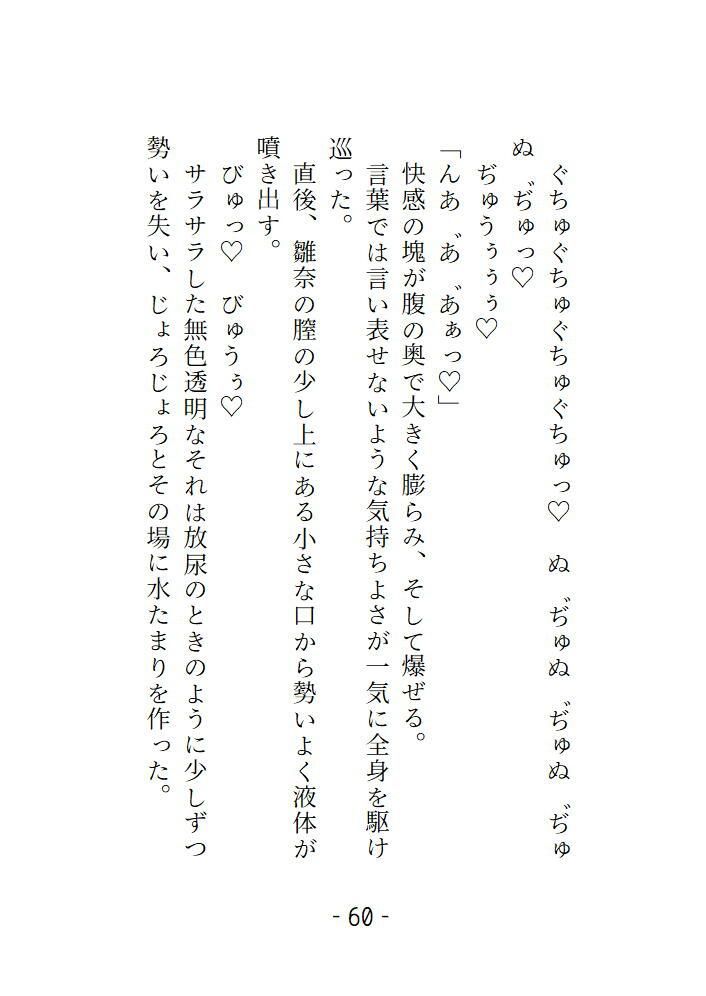 ぐちゅぐちゅぐちゅぐちゅっ♡　ぬ゛ぢゅぬ゛ぢゅぬ゛ぢゅ
ぬ゛ぢゅっ♡
ぢゅうぅぅぅ♡
「んあ゛あ゛あぁっ♡」
快感の塊が腹の奥で大きく膨らみ、そして爆ぜる。
言葉では言い表せないような気持ちよさが一気に全身を駆け
巡った。
直後、雛奈の膣の少し上にある小さな口から勢いよく液体が
噴き出す。
びゅっ♡　びゅうぅ♡
サラサラした無色透明なそれは放尿のときのように少しずつ
勢いを失い、じょろじょろとその場に水たまりを作った。
- 60 -